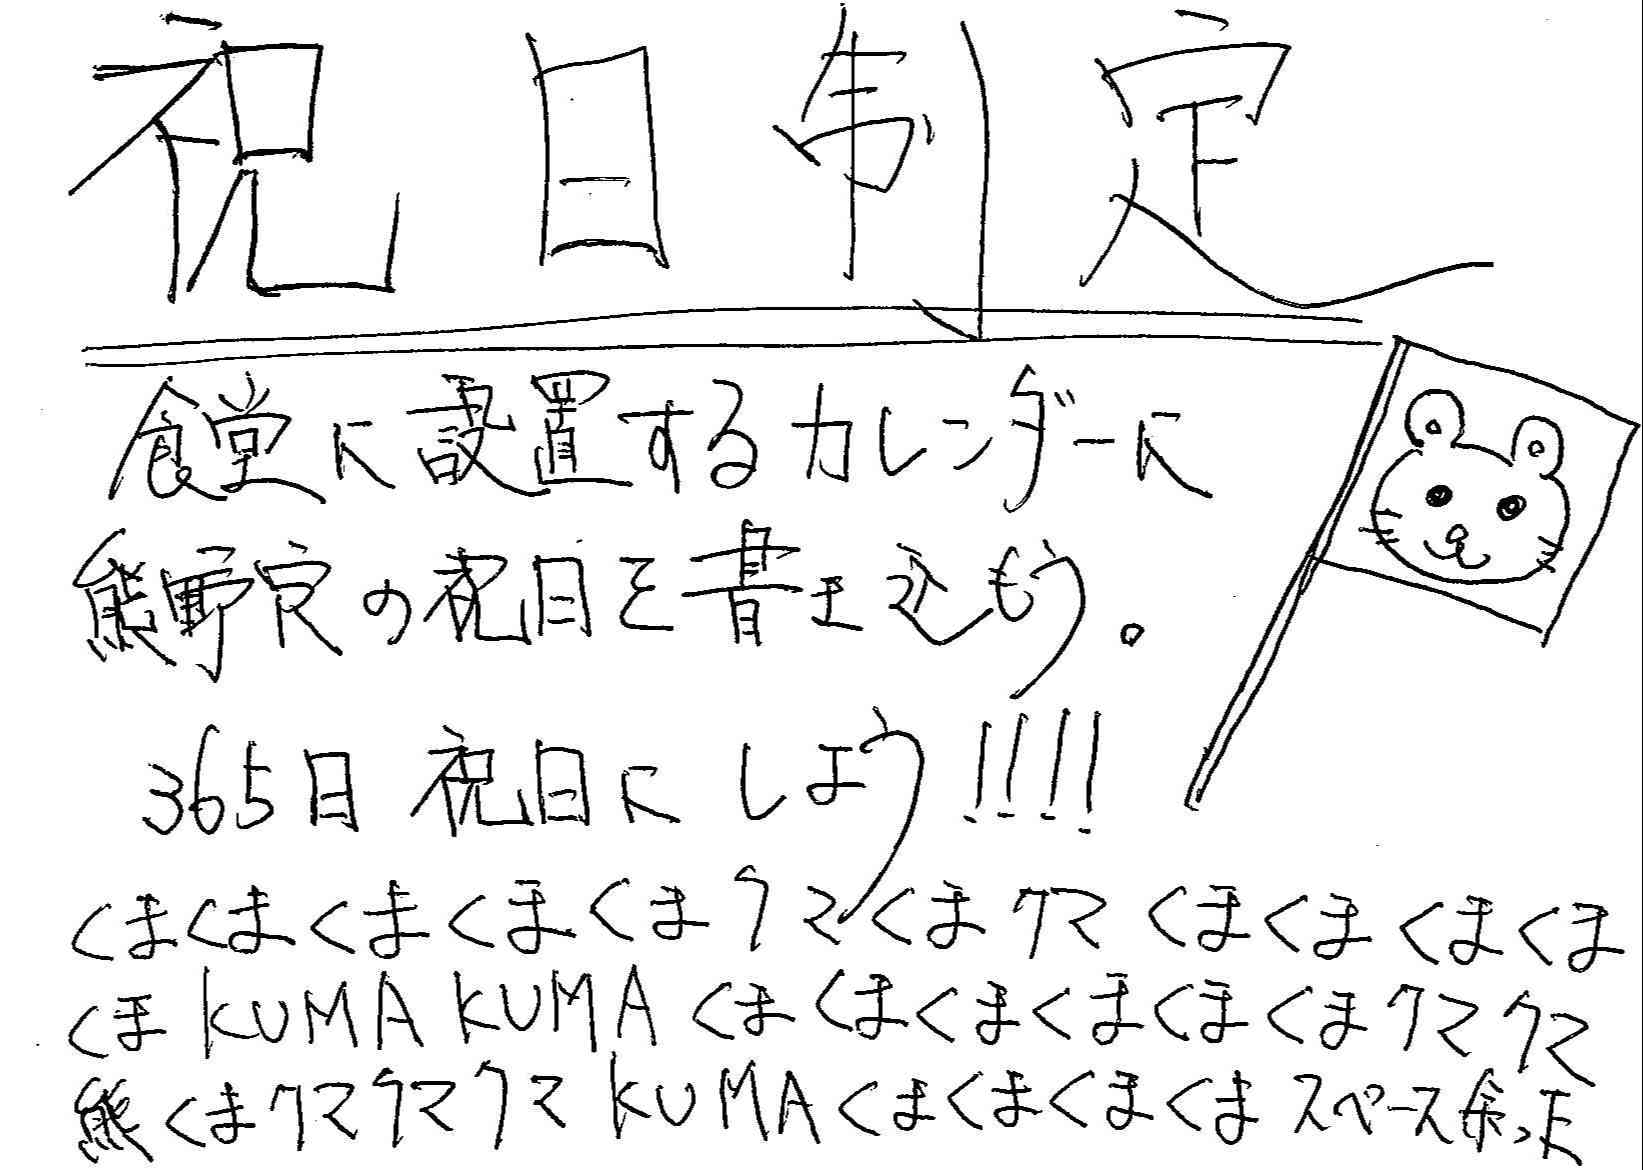 祝日制定
食堂に設置するカレンダーに
熊野寮の祝日を書き込もう。
365日 祝日にしよう!!!!
くまくまくまくまくまクマくまクマくまくまくまくま
くまKUMAKUMAくまくまくまくまくまくまクマクマ
熊くまクマクマクマKUMAくまくまくまくまスペース余った